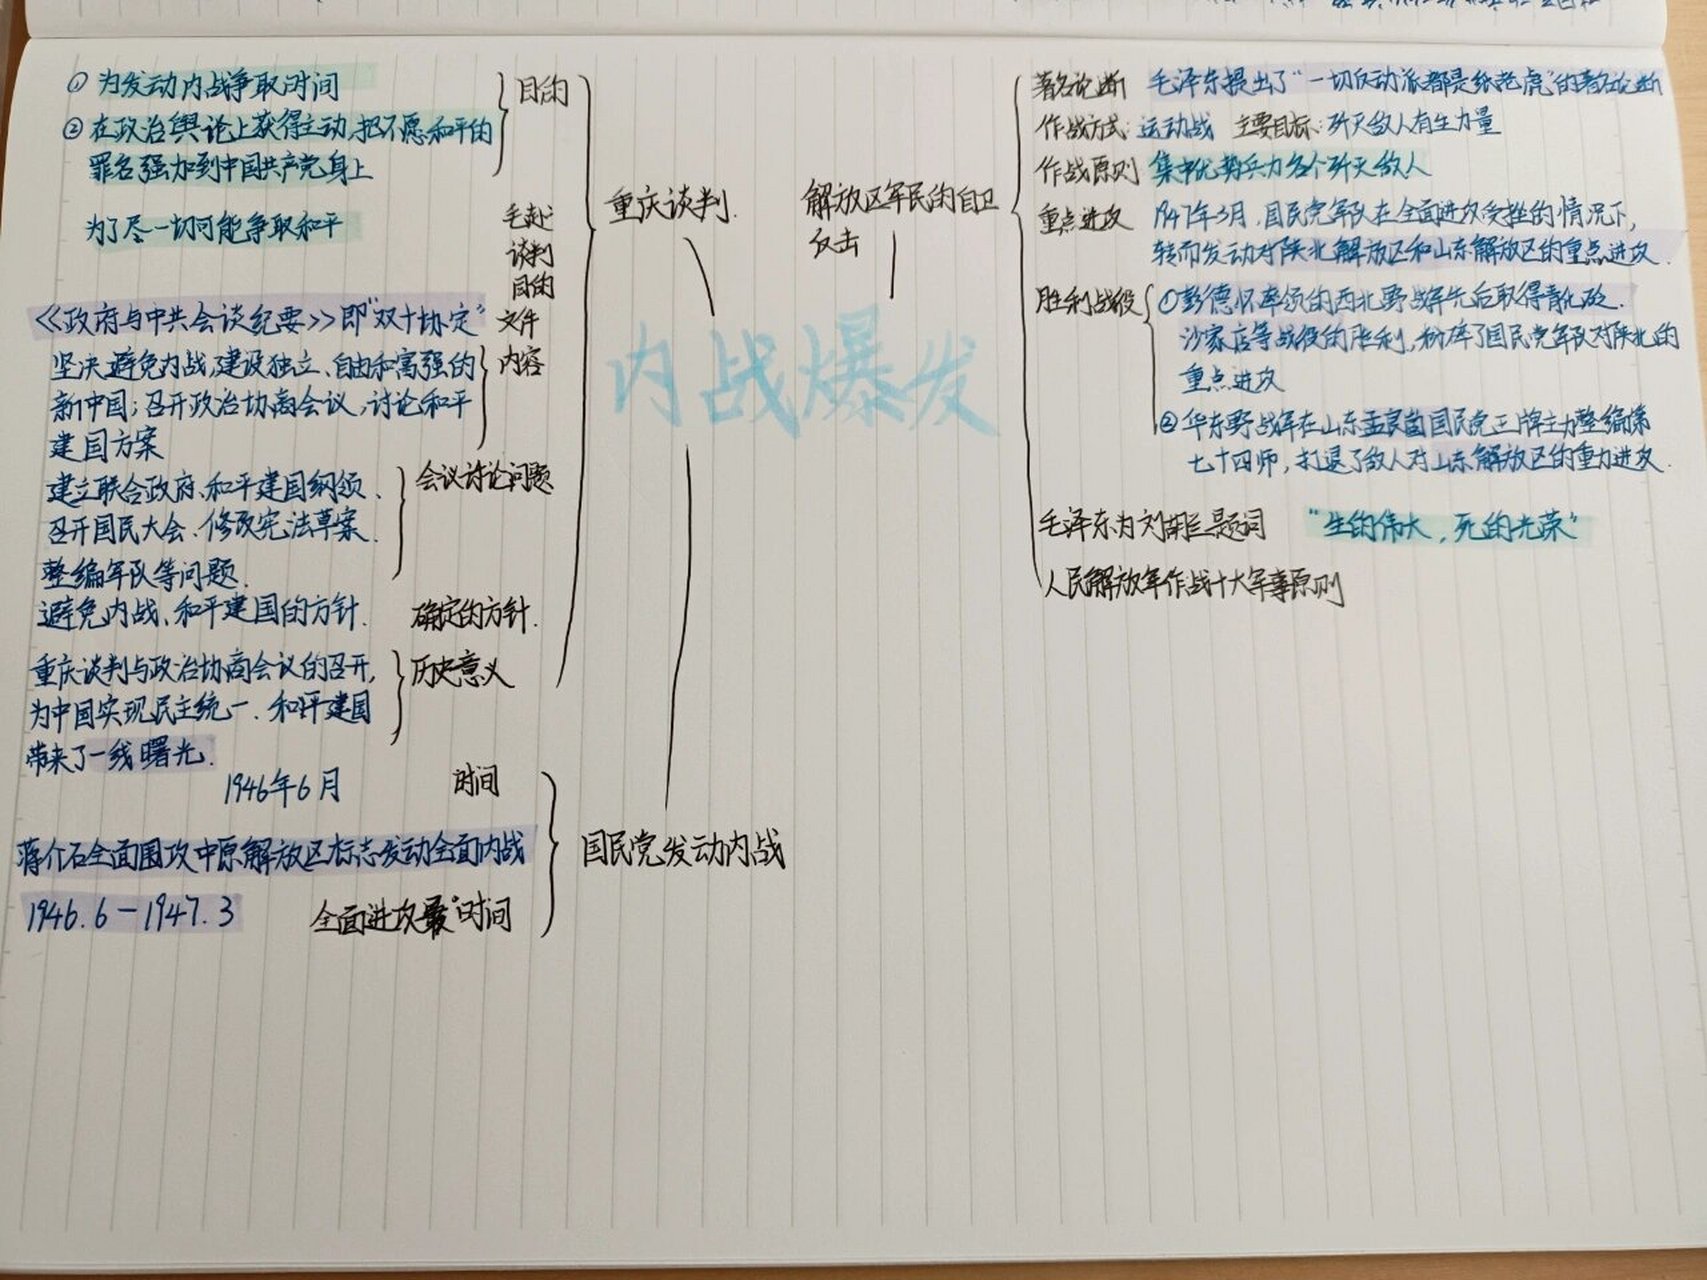 ① 为发动内战争取时间
② 在政治舆论上获得主动,把不愿和平的
罪名强加到中国共产党身上
目的
为了尽一切可能争取和平
毛赴
谈判
目的
《政府与中共会谈纪要》即“双十协定”
文件
坚决避免内战,建设独立、自由和富强的
新中国;召开政治协商会议,讨论和平
建国方案
内容
建立联合政府、和平建国纲领、
召开国民大会、修改宪法草案、
整编军队等问题.
会议讨论问题
避免内战、和平建国的方针.
确定的方针.
重庆谈判与政治协商会议的召开,
为中国实现民主统一、和平建国
带来了一线曙光.
历史意义
重庆谈判.
内战爆发
1946年6月
时间
蒋介石全面围攻中原解放区标志发动全面内战
1946.6-1947.3
全面进攻 时间
国民党发动内战
解放区军民的自卫
反击
著名论断 毛泽东提出了“一切反动派都是纸老虎”的著名论断
作战方式:运动战 主要目标:歼灭敌人有生力量
作战原则 集中优势兵力各个歼灭敌人
重点进攻 1947年3月,国民党军队在全面进攻受挫的情况下,
转而发动对陕北解放区和山东解放区的重点进攻.
胜利战役 ①彭德怀率领的西北野战军先后取得青化砭.
沙家店等战役的胜利,粉碎了国民党军队对陕北的
重点进攻
②华东野战军在山东孟良崮国民党王牌主力整编第
七十四师,打退了敌人对山东解放区的重力进攻.
毛泽东为刘胡兰题词 “生的伟大,死的光荣”
人民解放军作战十大军事原则